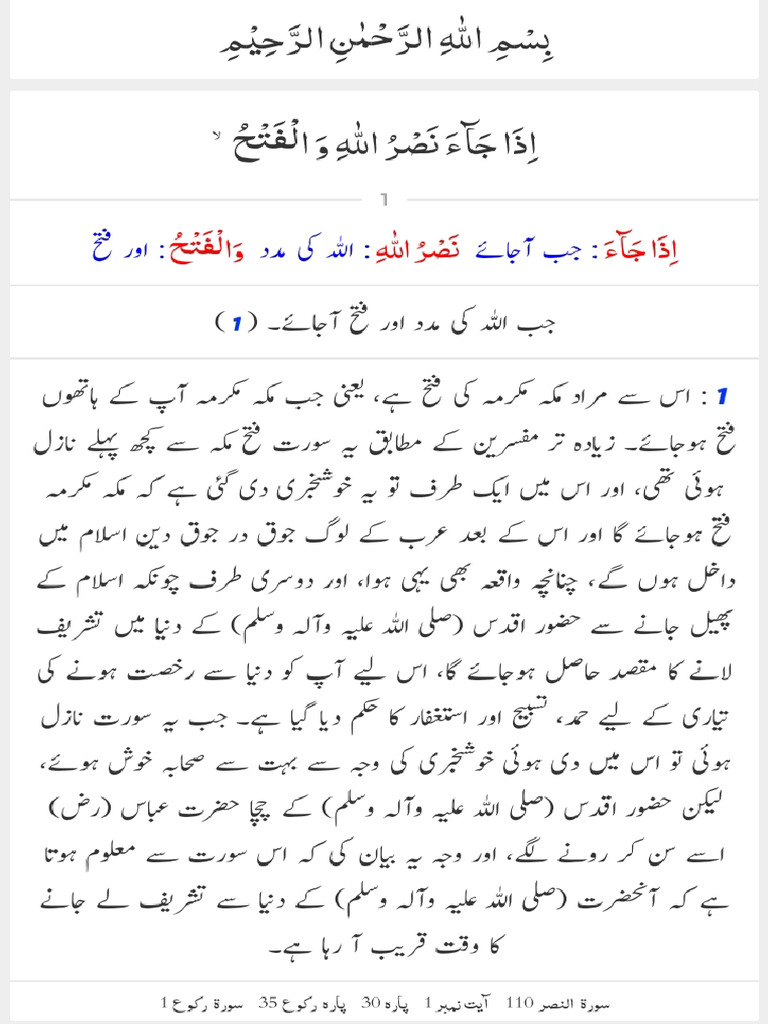 بِسْمِ اللّٰهِ الرَّحْمٰنِ الرَّحِيْمِ
اِذَا جَآءَ نَصْرُ اللّٰهِ وَ الْفَتْحُ ۙ
1
اِذَا جَآءَ : جب آجائے نَصْرُ اللّٰهِ : اللہ کی مدد وَالْفَتْحُ : اور فتح
جب اللہ کی مدد اور فتح آجائے۔ (1)
1 : اس سے مراد مکہ مکرمہ کی فتح ہے، یعنی جب مکہ مکرمہ آپ کے ہاتھوں
فتح ہوجائے۔ زیادہ تر مفسرین کے مطابق یہ سورت فتح مکہ سے کچھ پہلے نازل
ہوئی تھی، اور اس میں ایک طرف تو یہ خوشخبری دی گئی ہے کہ مکہ مکرمہ
فتح ہوجائے گا اور اس کے بعد عرب کے لوگ جوق در جوق دین اسلام میں
داخل ہوں گے، چنانچہ واقعہ بھی یہی ہوا، اور دوسری طرف چونکہ اسلام کے
پھیل جانے سے حضور اقدس (صلی اللہ علیہ وآلہ وسلم) کے دنیا میں تشریف
لانے کا مقصد حاصل ہوجائے گا، اس لیے آپ کو دنیا سے رخصت ہونے کی
تیاری کے لیے حمد، تسبیح اور استغفار کا حکم دیا گیا ہے۔ جب یہ سورت نازل
ہوئی تو اس میں دی ہوئی خوشخبری کی وجہ سے بہت سے صحابہ خوش ہوئے،
لیکن حضور اقدس (صلی اللہ علیہ وآلہ وسلم) کے چچا حضرت عباس (رض)
اسے سن کر رونے لگے، اور وجہ یہ بیان کی کہ اس سورت سے معلوم ہوتا
ہے کہ آنحضرت (صلی اللہ علیہ وآلہ وسلم) کے دنیا سے تشریف لے جانے
کا وقت قریب آ رہا ہے۔
سورۃ النصر 110 آیت نمبر 1 پارہ 30 پارہ رکوع 35 سورۃ رکوع 1